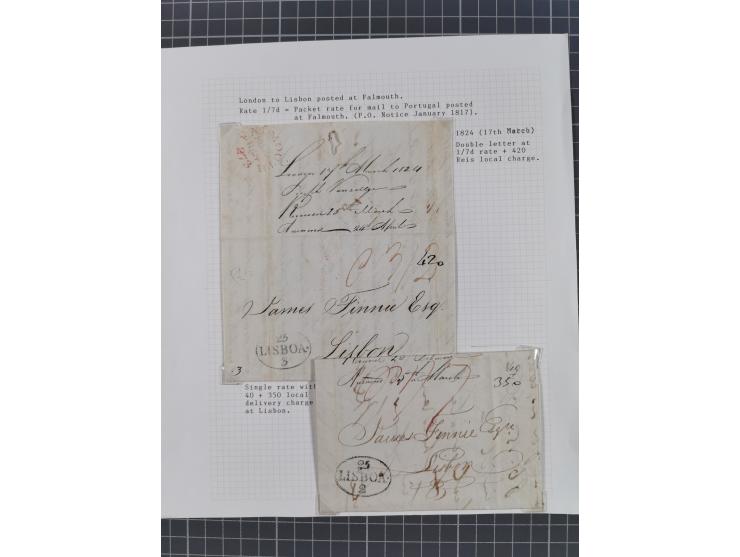 London to Lisbon posted at Falmouth.
Rate 1/7d = Packet rate for mail to Portugal posted
at Falmouth. (P.O. Notice January 1817).
1824 (17th March)
Double letter at
1/7d rate + 420
Reis local charge.
London 17th March 1824
25th March
24th April
3/2
420
James Finnie Esq.
Lisbon
25
LISBOA
3
3
Single rate with
40 + 350 local
delivery charge
at Lisbon.
25th March
350
James Finnie Esqr
Lisbon
25
LISBOA
2